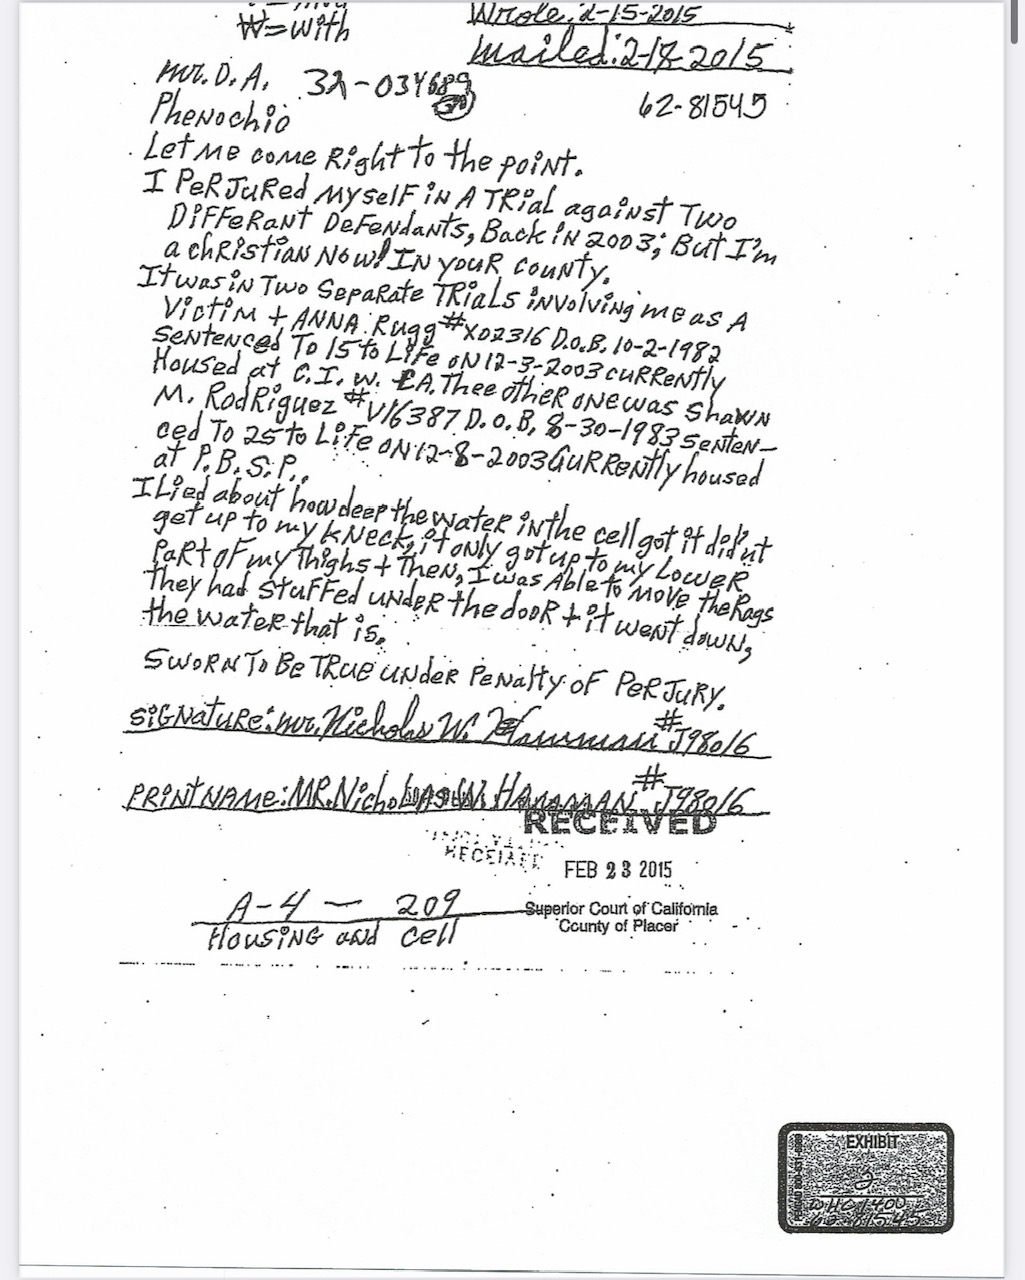 W=with
Wrote: 2-15-2015
Mailed: 2-18-2015
Mr. D.A. 32-034689
62-81545
Phenochio
Let me come Right to the point.
I PERJURed Myself iN A TRial against Two
DiffeRaNt DefeNdants, Back iN 2003; But I'm
a chRistian Now! IN youR county.
It was in Two Separate TRials iNvolving me as A
Victim + ANNA Rugg #X02316 D.O.B. 10-2-1982
sentenced To 15 to Life oN 12-3-2003 cuRReNtly
Housed at C.I.W. CA. Thee otheR oNe was ShawN
M. RodRiguez #V16387 D.O.B, 8-30-1983 seNteN-
ced To 25 to Life oN 12-8-2003 CuRReNtly housed
at P.B.S.P..
I Lied about how deep the wateR iN the cell got it did'nt
get up to my kNeck, it oNly got up to my LoweR
PaRt of my Thighs + TheN, I was Able to move the Rags
They had StuffeD uNdeR the dooR + it weNt dowN,
the wateR that is.
SwoRN To Be TRue uNdeR PeNalty of PeRJuRy.
SiGNatuRe: mr. Nicholas W. Hamman #J98016
PRiNt NAMe: MR. Nicholas W. HAMMAN #J98016
RECEIVED
FEB 23 2015
A-4 — 209
Superior Court of California
County of Placer
HousiNG aNd cell
EXHIBIT
2
WHC 1400
62-81545